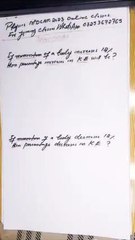 Physics MDCAT 2023 Online classes
For joining classes WhatsApp
If momentum of a body increases 10%
How percentage increase in K.E will be?
If momentum of a body decreases 10%
How percentage decrease in K.E ?